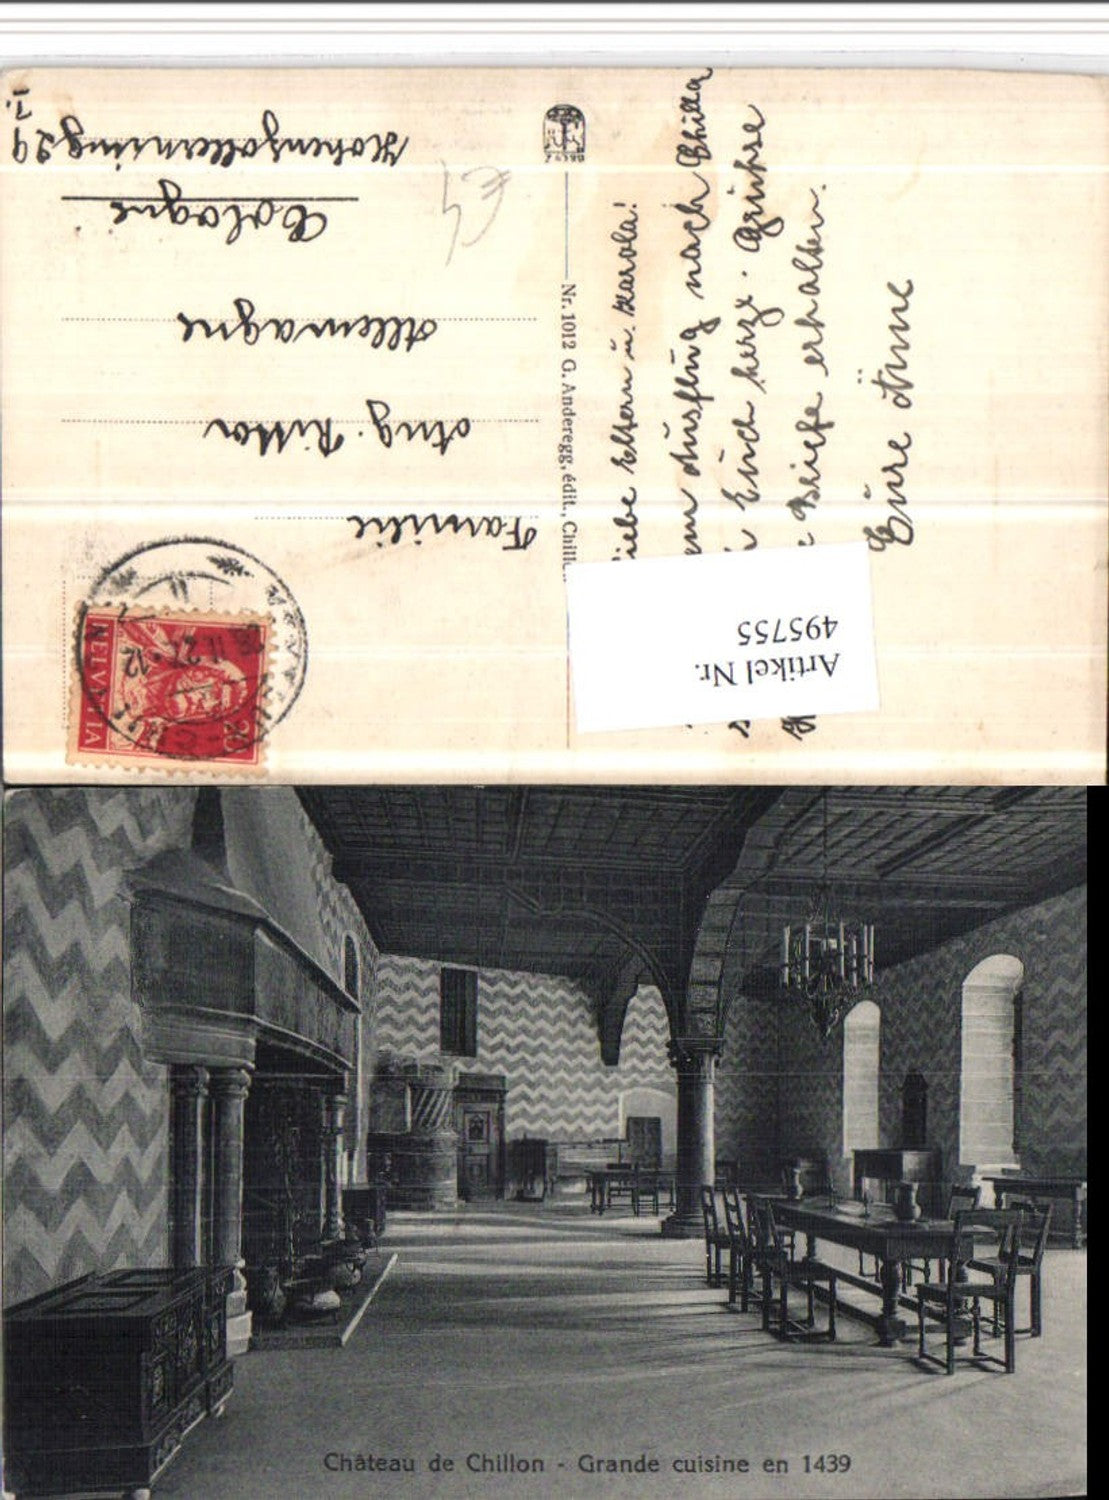 Liebe Eltern u. Karola!
Ausflug nach Chillon
Euch herzl. Grüsse
Briefe erhalten.
Eure Änne
Nr. 1012 G. Anderegg, édit., Chillon
74390
Familie
Aug. Ritter
Allemagne
Cologne
Hohenzollernring 29
I.
€4
HELVETIA
20
Artikel Nr.
495755
Château de Chillon - Grande cuisine en 1439